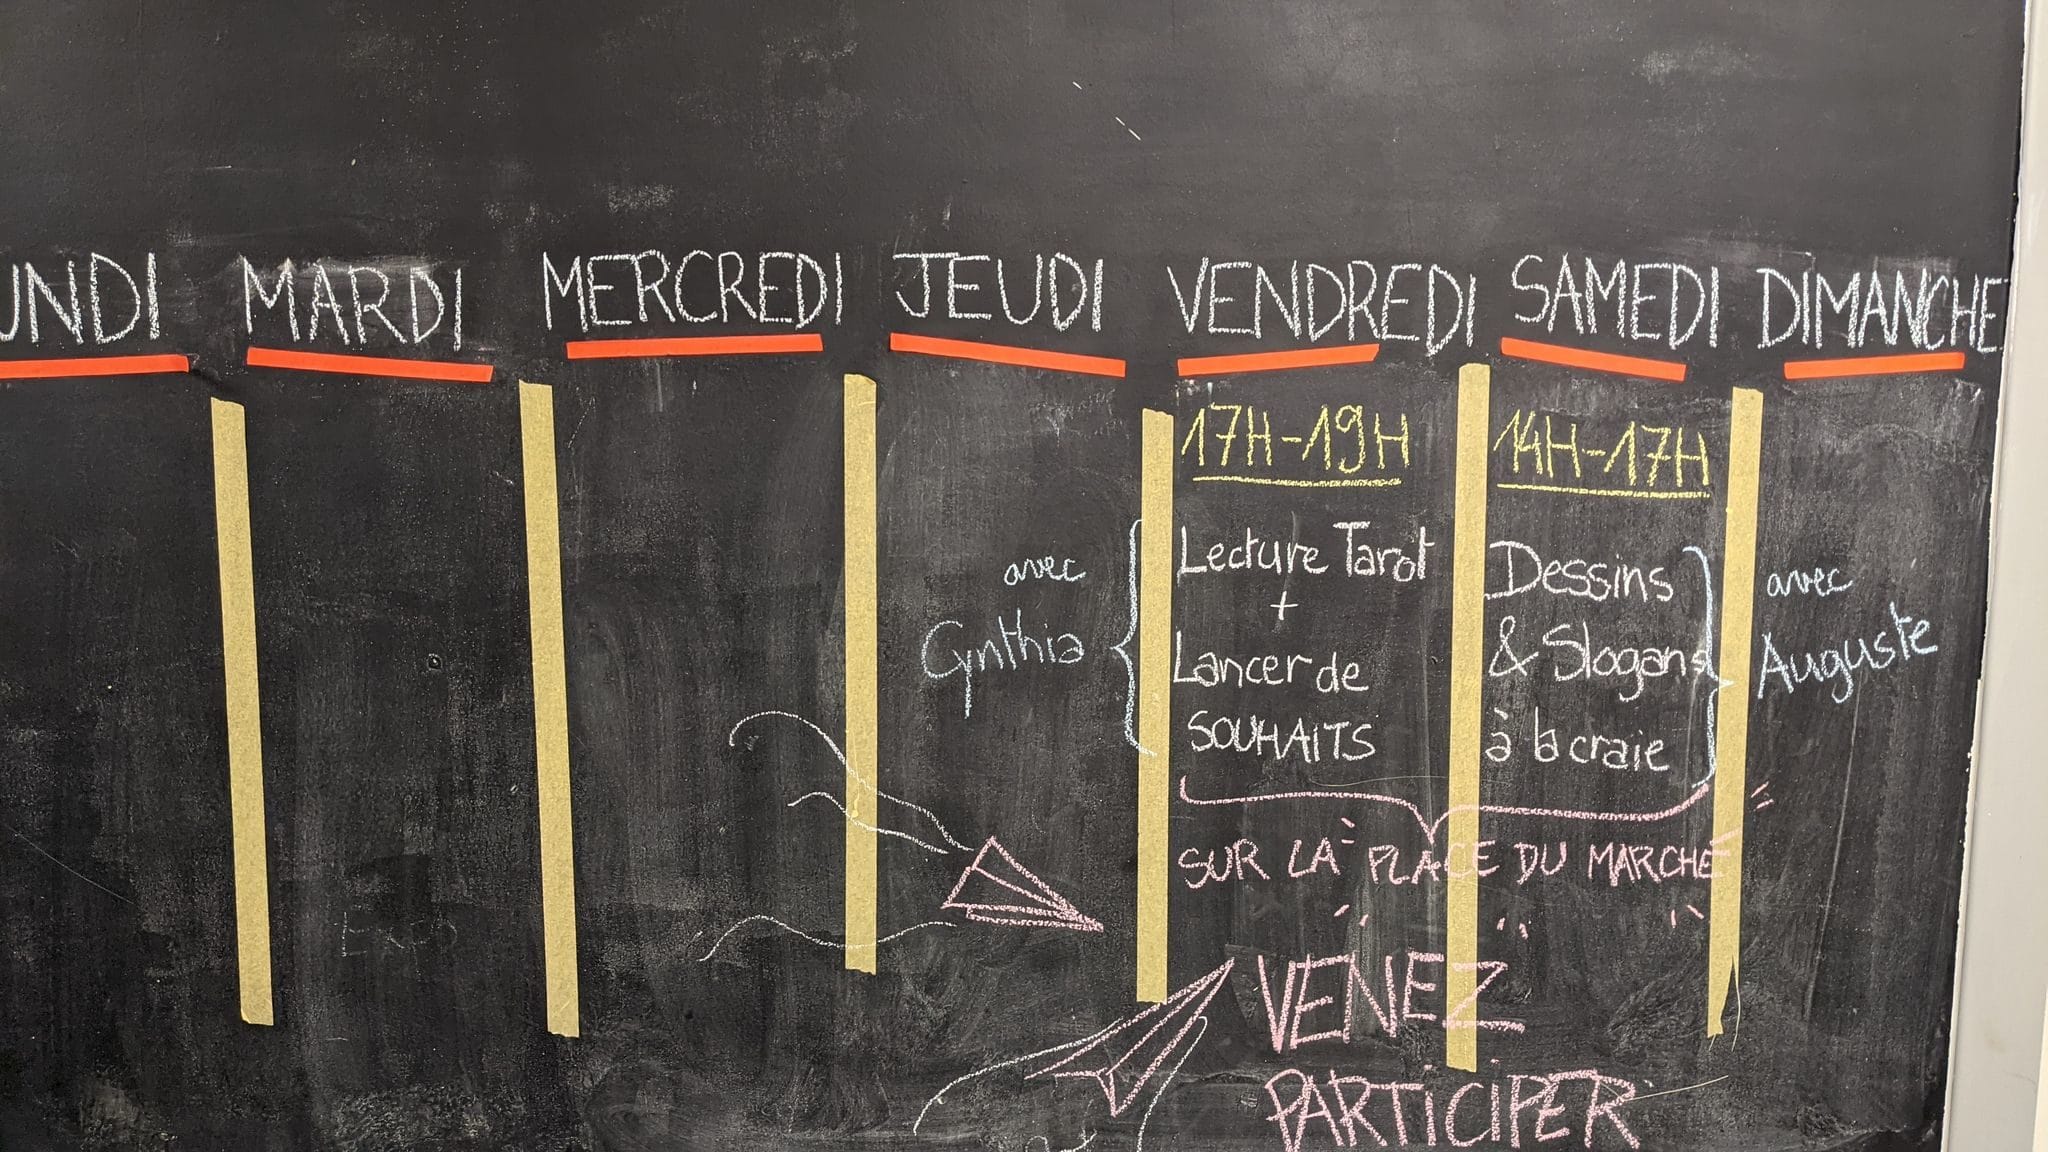 UNDI MARDI MERCREDI JEUDI VENDREDI SAMEDI DIMANCHE
17H-19H
Lecture Tarot
+
Lancer de
SOUHAITS
avec
Cynthia
14H-17H
Dessins
& Slogans
à la craie
avec
Auguste
SUR LA PLACE DU MARCHÉ
VENEZ
PARTICIPER